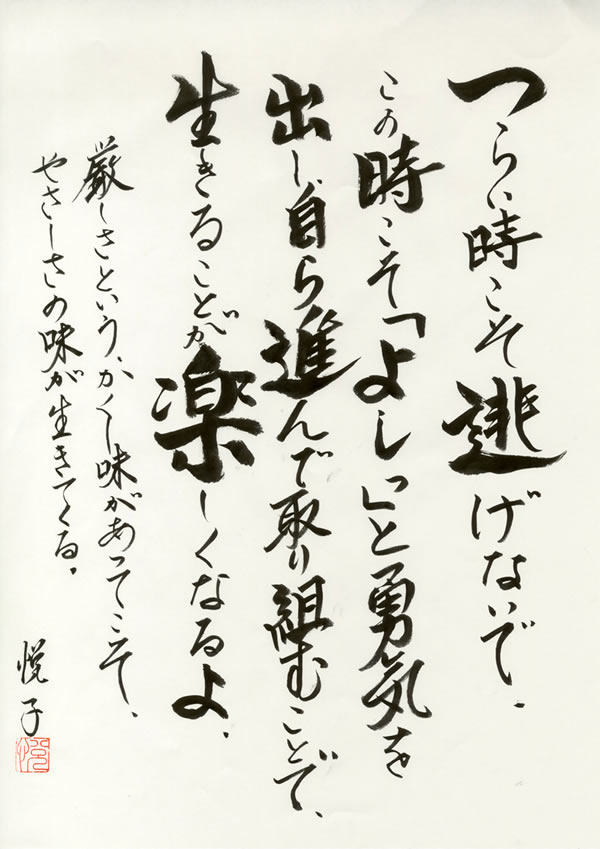 つらい時こそ逃げないで、
この時こそ「よし」と勇気を
出し、自ら進んで取り組むことで、
生きることが楽しくなるよ、
厳しさという、かくし味があってこそ、
やさしさの味が生きてくる、
悦子